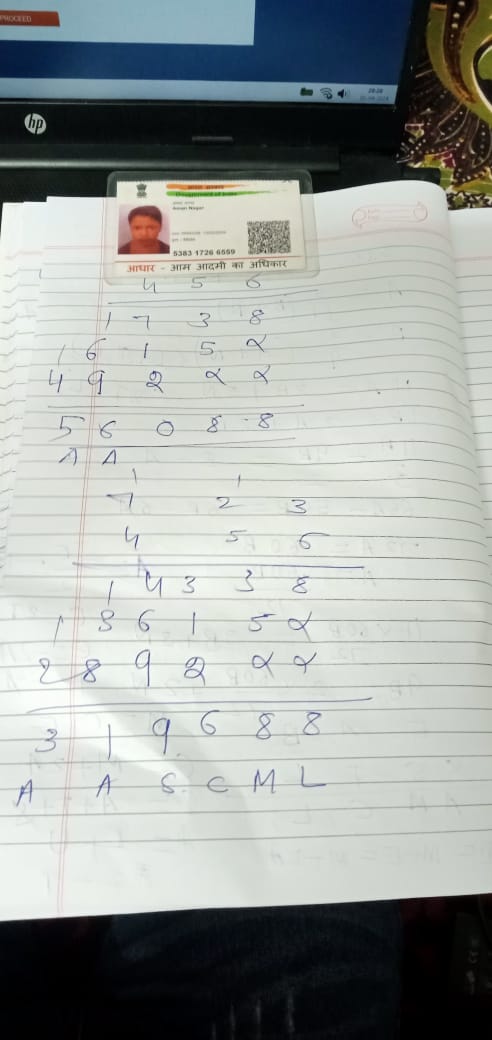 PROCEED
hp
भारत सरकार
Government of India
Aman Nagar
5383 1726 6559
आधार - आम आदमी का अधिकार
4 5 6
1 7 3 8
1 6 1 5 x
4 9 2 x x
5 6 0 8 8
A A
1 1
7 2 3
4 5 6
1 4 3 3 8
1 3 6 1 5 x
2 8 9 2 x x
3 1 9 6 8 8
A A S C M L